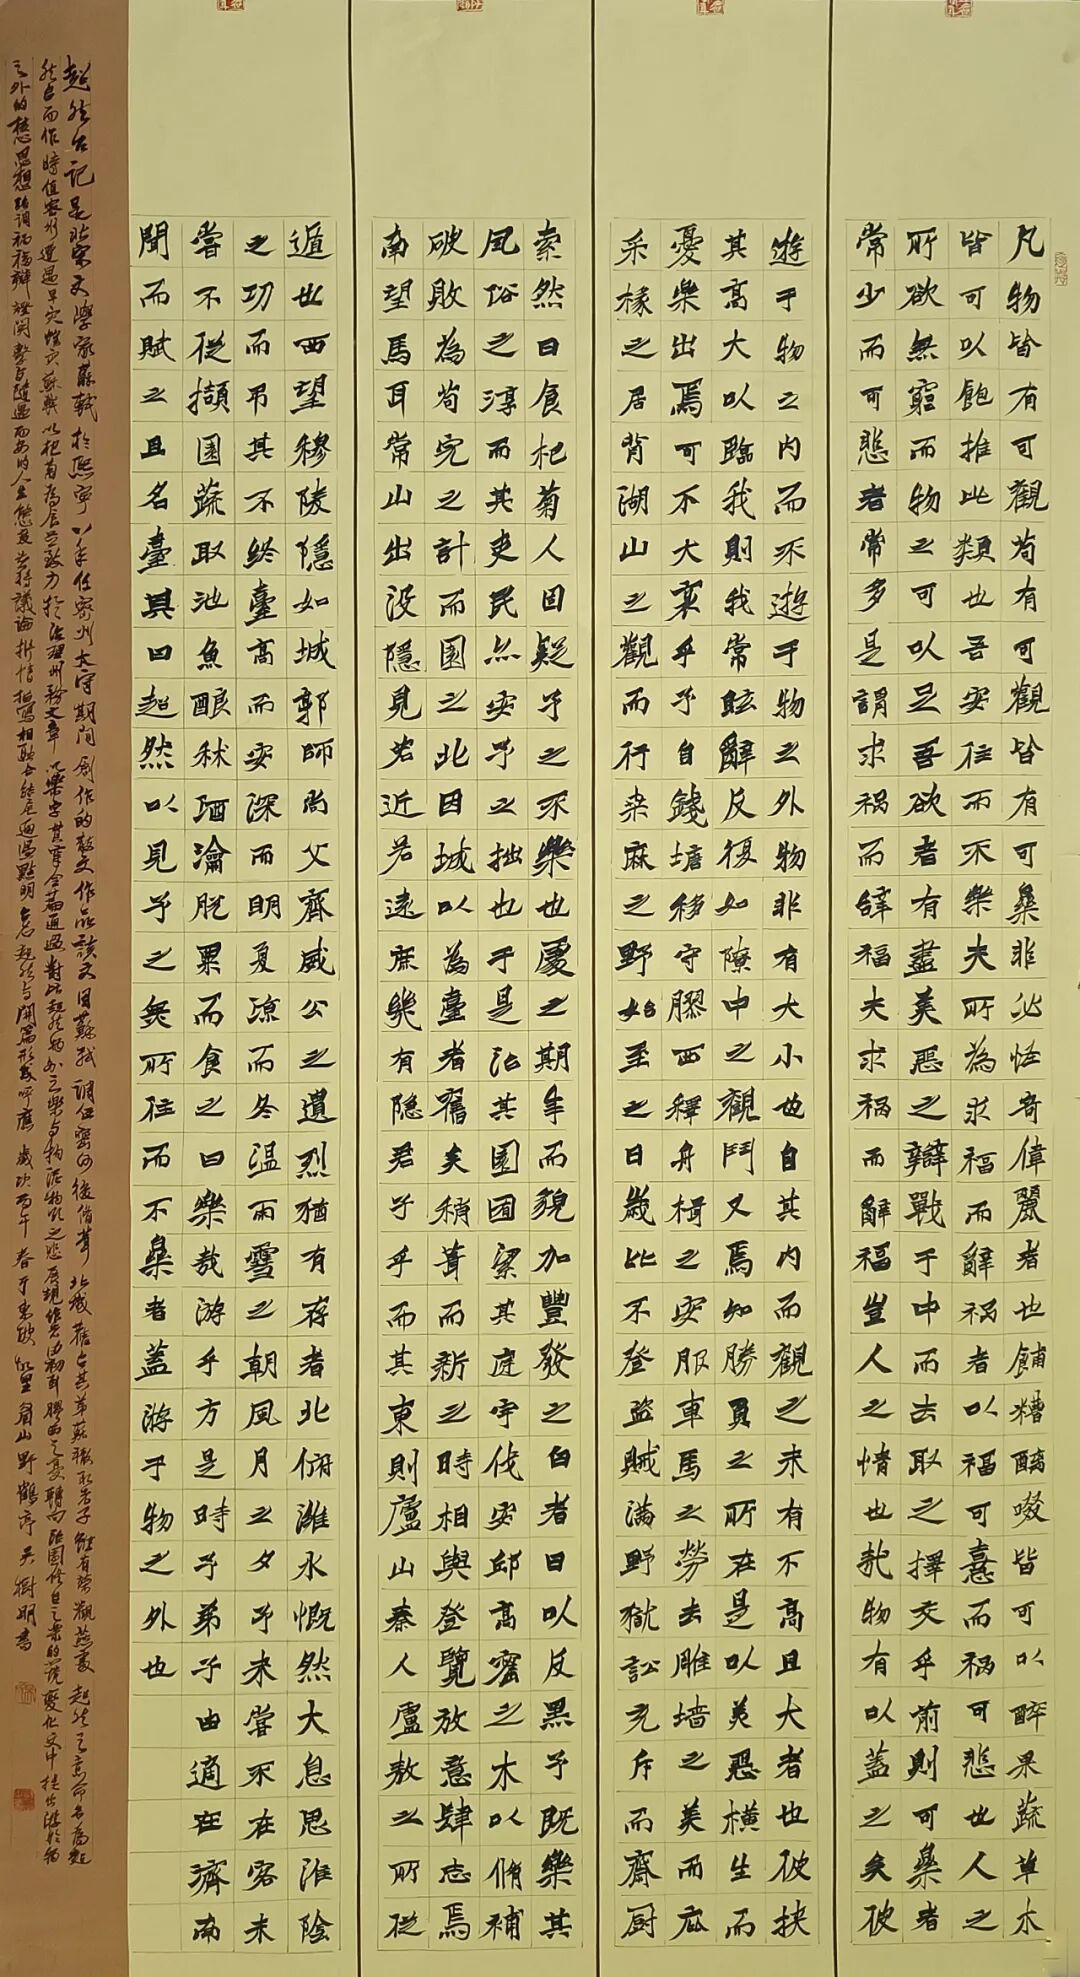 凡物皆有可觀茍有可觀皆有可樂非必怪奇偉麗者也餔糟醨啜皆可以醉果蔬草木
皆可以飽推此類也吾安往而不樂夫所為求福而辭禍者以福可憙而禍可悲也人之
所欲無窮而物之可以足吾欲者有盡美惡之辯戰于中而去取之擇交乎前則可樂者
常少而可悲者常多是謂求禍而辭福夫求禍而辭福豈人之情也哉物有以蓋之矣彼
遊于物之内而不遊于物之外物非有大小也自其内而觀之未有不高且大者也彼挾
其高大以臨我則我常眩辭反復如隙中之觀鬥又焉知勝負之所在是以美惡橫生而
憂樂出焉可不大哀乎予自錢塘移守膠西釋舟楫之安服車馬之勞去雕墻之美而庇
采椽之居背湖山之觀而行桑麻之野始至之日歲比不登盜賊滿野獄訟充斥而齋厨
索然日食杞菊人固疑予之不樂也處之期年而貌加豐發之白者日以反黑予既樂其
風俗之淳而其吏民亦安予之拙也于是治其園囿潔其庭宇伐安邱高密之木以脩補
破敗為茍完之計而園之北因城以為臺者舊矣稍葺而新之時相與登覽放意肆志焉
南望馬耳常山出没隱見若近若遠庶幾有隐君子乎而其東則廬山秦人盧敖之所從
遁也西望穆陵隱如城郭師尚父齊威公之遺烈猶有存者北俯濰水慨然大息思淮陰
之功而吊其不終臺高而安深而明夏涼而冬温雨雪之朝風月之夕予未嘗不在客未
嘗不從擷園蔬取池魚釀秫酒瀹脱粟而食之曰樂哉游乎方是時予弟子由適在濟南
聞而賦之且名臺其曰超然以見予之無所往而不樂者蓋游于物之外也
超然台記是北宋文學家蘇軾於熙寧八年任密州太守期間創作的散文作品該文因蘇軾調任密州後修葺北城舊台其弟蘇轍取老子雖有榮觀燕處超然之意命名為超
然台而作時值密州遭遇旱灾蝗灾蘇軾以杞菊為食并致力於治理州務文章以樂字貫穿全篇通過對比超然物外之樂與拘泥物欲之悲展現作者由初到膠西之憂轉向治園修台之樂的心境變化文中提出游於物
之外的思想強調禍福辯證關係與隨遇而安的人生態度兼將議論抒情描寫相融合結尾通過點明台名超然與開篇形成呼應 歲次丙午春于 眉山野鶴亭吴樹明書